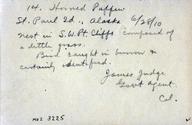 14. Horned Puffin
St. Paul Id., Alaska 6/28/10
Nest in S.W. Pt. Cliffs composed of
a little grass.
Bird caught in burrow &
certainly identified.
James Judge
Govt agent.
Col.
MVZ 3225